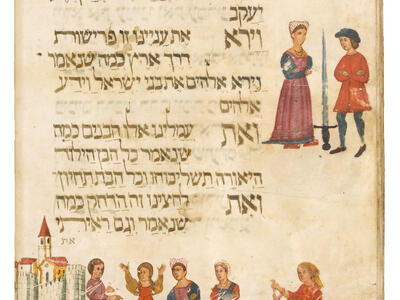 יעקב
וירא את ענינו זו פרישות
דרך ארץ כמה שנאמר
וירא אלהים את בני ישראל וידע
אלהים
ואת עמלינו אלו הבנים כמה
שנאמר כל הבן הילוד
היאורה תשליכוהו וכל הבת תחיון
ואת לחצינו זה הדחק כמה
שנאמר וגם ראיתי
את